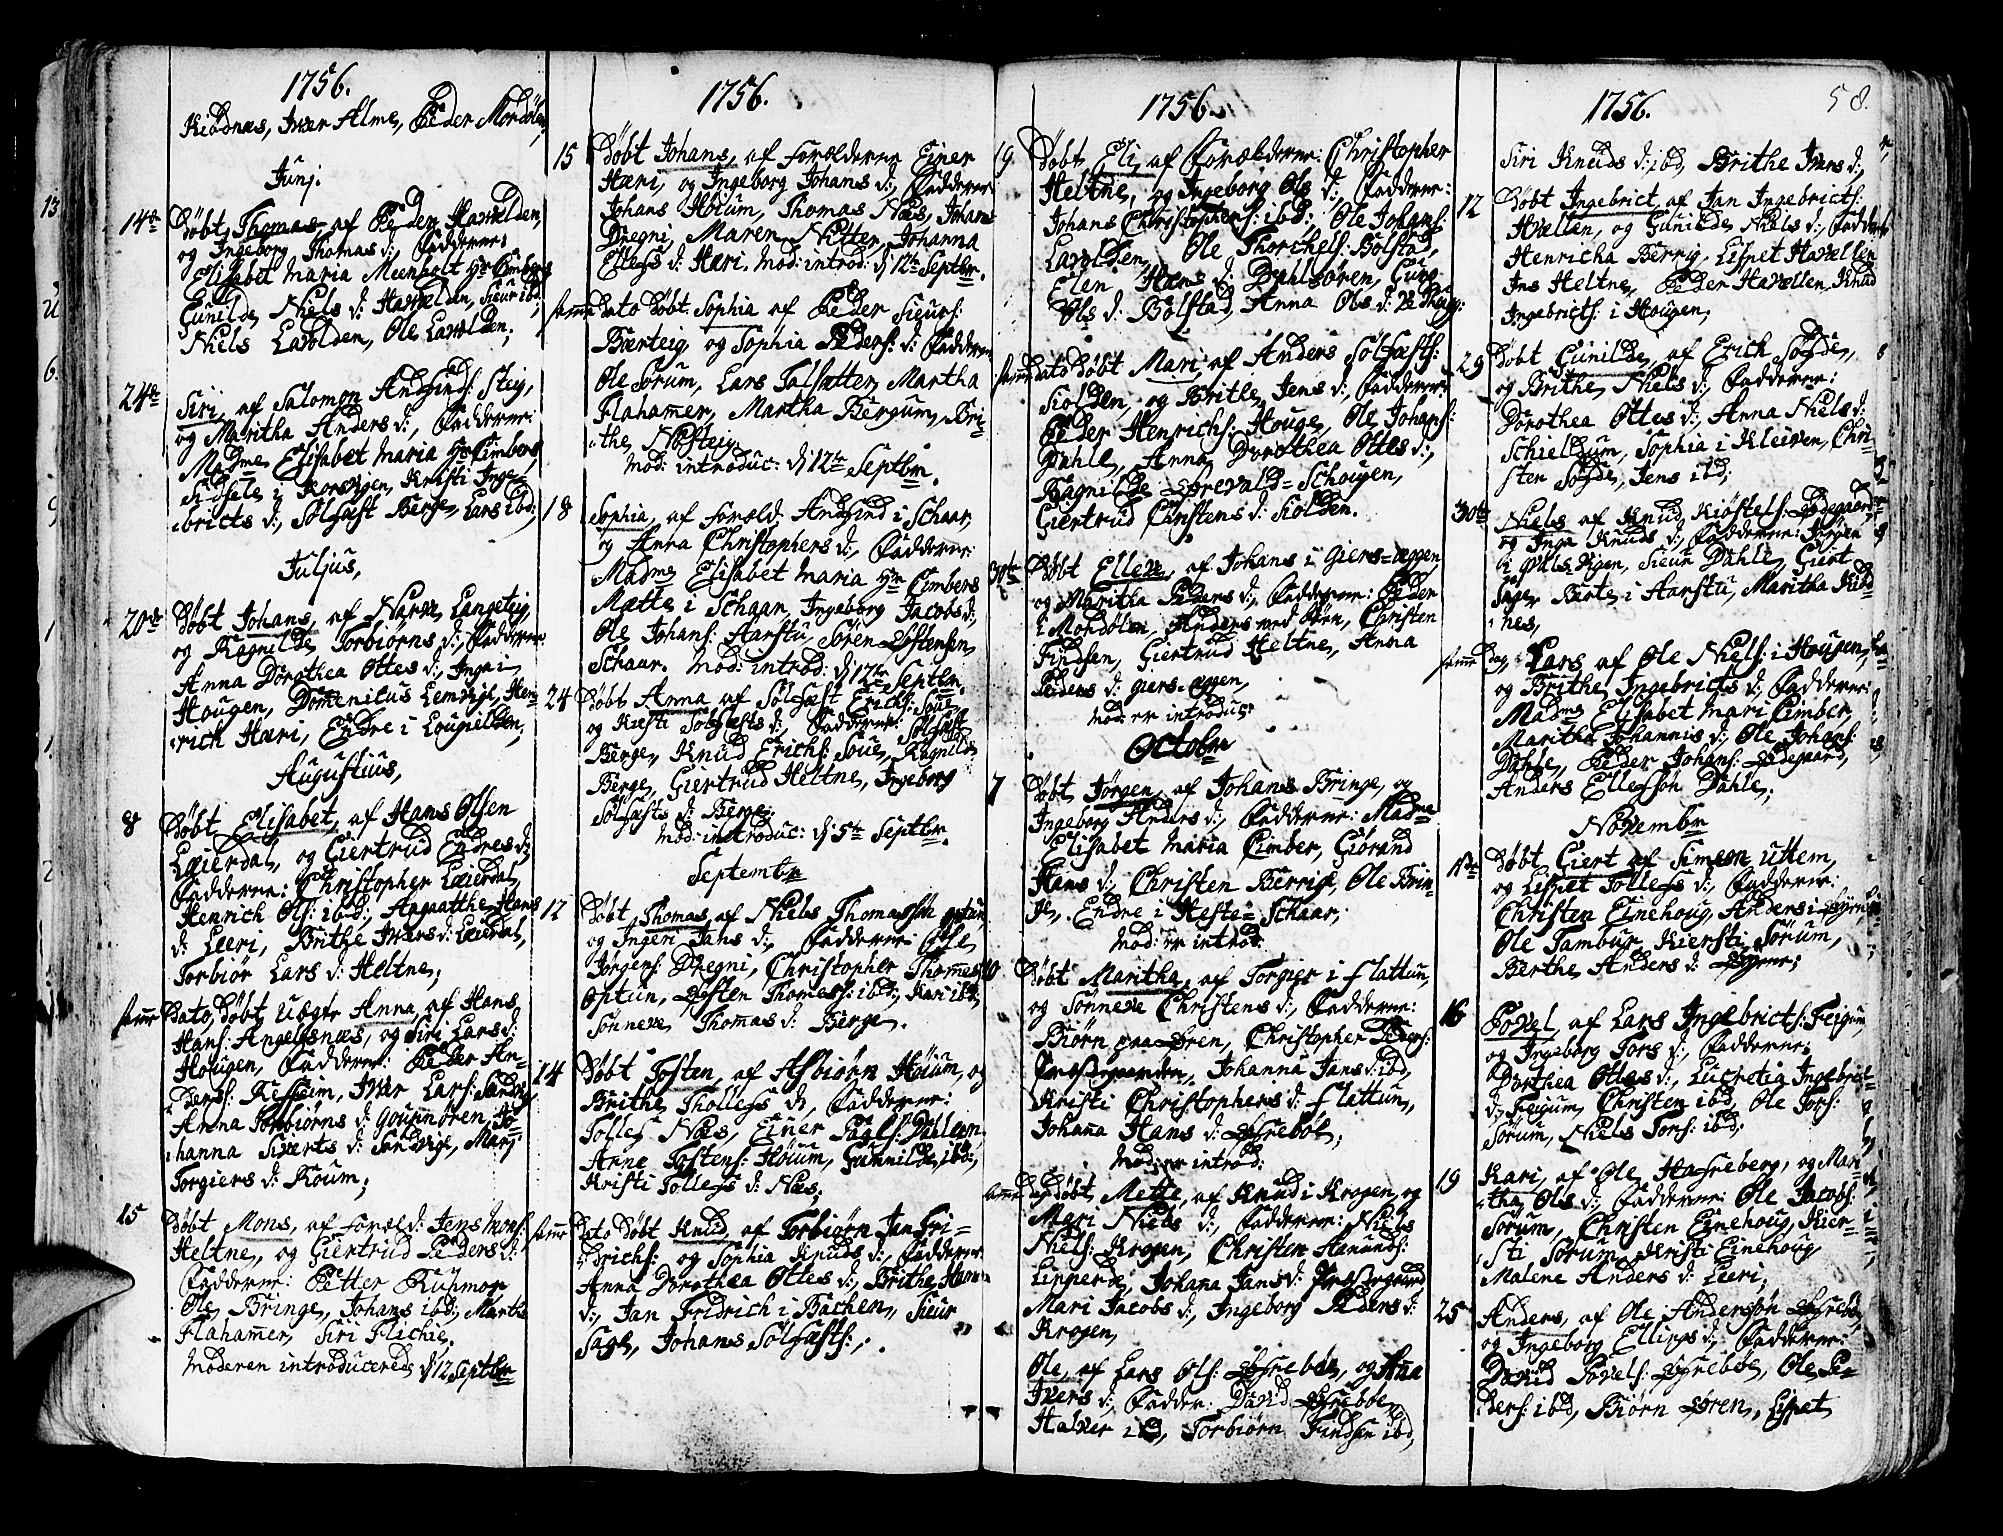 1756.
Kiødnæs, Iver Alme, Peder Mordølen,
Junj.
14de Døbt Thomas af Peder Havelden,
og Ingeborg Thomas d:, Fadderne:
Elisabet Maria Meenholt Hr Cimbers
Gunilde Niels d: Havelden, Sieur ibd,
Niels Lavolden, Ole Lavolden;
24de Siri, af Salomon Andfind: Steig,
og Maritha Anders d:, Fadderne:
Madme Elisabet Maria Hr Cimbers,
Sidsele i Korsvigen, Kristi Inge-
bricts d:, Solfæst Berge, Lars ibd;
Juljus,
20de Døbt Johans, af Narve Langeteig,
og Ragnilde Torbiørns d:, Fadderne:
Anna Dorothea Ottes d:, Inga i
Hougen, Domenikus Lemvige, Hen-
rich Hæri, Endre i
Augustius,
8 Døbt Elisabet, af Hans Olsen
Læierdal, og Giertrud Endres d:
Fadderne: Christopher Leierdal,
Henrich Ols: ibd:, Aagaatthe Hans
d: Leeri, Brithe Ivers d: Leierdal,
Torbiør Lars d: Heltne;
samme Dato, Døbt Anna, af Hans
Hans: Angelsnæs, og Siri Lars d:
Hougen, Fadderne: Peder An-
ders: Kessem, Iver Lars: Sandvig
Anna Torbiørns d: Goupnøren, Jo-
hanna Siverts d: Sandvige, Marj
Torgiers d: Roum;
15 Døbt Mons, af Foræld: Jens Mons:
Heltne, og Giertrud Peders d:
Fadderne: Petter
Ole Bringe, Johans ibd:, Martha
Flahamer, Siri Flichie.
Moderen introducerede d. 12 Septbr
1756.
15 Døbt Johans, af Forælderne Einer
Hæri, og Ingeborg Johans d:, Fadderne
Johans Høium, Thomas Næs, Johans
Dregni, Maren Nitter, Johanna
Ellefs d: Hæri. Mod: introd: d. 12te Septbr.
samme Dato Døbt Sophia af Peder Sieurs:
Bærteig, og Sophia Peders: d: Fadderne
Ole Sorum, Lars Talsætter, Martha
Flahamer, Martha Bergum, Bri-
the, Nesteig,
Mod: introduc: d. 12te Septbr.
18 Sophia, af Foræld: Andfind i Schaar,
og Anna Christophers d:, Fadderne:
Madme Elisabet Maria Hr Cimbers
Mætte i Schaar, Ingeborg Jacobs d:,
Ole Johans: Aarstu, Søren
Schaar. Mod: introd: d. 12te Septbr.
24 Døbt Anna af Solfæst Erichs: Soue,
og Kiesti Solfæsts d: Fadderne: Solfæst
Berge, Knud Erichs: Soue, Ragnilde
Berge, Giertrud Heltne, Ingeborg
Solfæsts d: Berge.
Mod: introduc: d. 5te Septbr.
Septembr
12 Døbt Thomas, af Niels Thomassøn optun,
og Ingeri Jans d:, Fadderne: Ole
Jørgens: Dregni, Christopher Thomes:
Optun, Thomess: ibd:, Kari ibd;
Sonneve Thomas d: Berge.
14 Døbt Tosten, af Asbiørn Høium, og
Brithe Thollefs d:, Fadderne:
Tollef Næs, Einer Pagls: Dahleøn
Anne Tostens: Høium, Gunnilde ibd:,
Kristi Tollefs d: Næs;
samme Dato Døbt Knud, af Torbiørn Jan Fri-
drichs: og Sophia Knuds d:, Fadderne
Anna Dorothæa Ottes d:, Brithe Hans
d:, Jan Fridrich i Bachen, Sieur
Sage, Johans Solfæsts:,
1756.
19 Døbt Eli, af Forælderne: Christopher
Heltne, og Ingeborg Ols d:, Fadderne:
Johans Christophers: ibd:, Ole Johans:
Lavolden, Ole Thorchels: Bolstad,
Elen Hans d: Dahlsøren,
Ols d: Bolstad, Anna Ols d:
samme Dato Døbt Mari af Anders Solfæsts:
Siolden, og Brithe Jens d:, Fadderne:
Peder Henrichs: Houge, Ole Johans:
Dahle, Anna Dorothea Ottes d:,
Ragnilde = Schougen,
Giertrud Christens d: Siolden.
30te Døbt Ellen, af Johans i Giers=æggen
og Maritha Peders d:, Fadderne: Peder
i Mordølen, Anders ved Øren, Christen
Findsen, Giertrud Heltne, Anna
Peders d: Giers-æggen,
Mod: er introduc:
Octobr
7 Døbt Jørgen, af Johans Bringe, og
Ingeborg Anders d:, Fadderne: Madme
Elisabet Maria Cimber, Giørand
Hans d:, Christen Berrige, Ole Brin-
ge, Endre i Heste= Schaar;
Mod: er introd:
10 Døbt Maritha, af Torgier i Flattun,
og Sonneve Christens d:, Fadderne:
Biørn paa Øren, Christopher Peders:
Præstegaarden, Johanna Jans d: ibd,
Kristi Christophers d: Flattun,
Johana Hans d:
Mod: er introd:
samme Dag Døbt Mette, af Knud i Krogen, og
Mari Niels d:, Fadderne: Niels
Niels: Krogen, Christen Aamunds:
Lipperde, Johana Jans d:
Mari Jacobs d:, Ingeborg Peders d:
Krogen,
Ole, af Lars Ols: og Anna
Ivers d:, Fadder: David
Halver ibd, Torbiørn Findsen ibd,
1756. 58.
Siri Knuds d: ibd, Brithe Ivers d:,
12 Døbt Ingebrict, af Jan Ingebricts:
Hvellen, og Gunilde Niels d:, Fadderne
Henricha Berrig, Lispet Havellen
Jns Heltne, Peder Havellen, Knud
Ingebricts: i Hougen;
29 Døbt Gunilde, af Erich Søgde,
og Brithe Niels d:, Fadderne:
Dorothea Ottes d:, Anna Niels d:
Schieldum, Sophia i Kleiven, Chri-
sten Søgde, Jens ibd;
30te Niels af Knud Kiøstels: Ødegaard
og Inga Knuds d:, Fadderne: Jørgen
Sieur Dahle, Giert
Sage, Birte i Aarstu, Maritha Kiød-
nes,
samme Dag, Lars af Ole Niels: i Hougen,
og Brithe Ingebricts d:, Fadderne:
Madme Elisabet Mari Cimber
Maritha Johannis d:, Ole Johans:
Dahle, Peder Johans: Ødegaard,
Anders Ellefsøn Dahle;
Novembr
Døbt Giert af Simeon uttem,
og Lispet Tollefs d:, Fadderne:
Christen Einehoug, Anders i
Ole Tambur, Kiersti Sørum,
Berthe Anders d:
16 Povel, af Lars Ingebricts: Feigum
og Ingeborg Tors d:, Fadderne:
Dorthea Ottes d:, Lucretia Ingebrict-
d: Feigum, Christen ibd, Ole Tors:
Sørum, Niels Tors: ibd;
19 Kari, af Ole Hafreberg, og Mari-
tha Ols d:, Fadderne: Ole Jacobs:
Sørum, Christen Einehoug, Kier-
sti Sørum, Kristi Einehoug
Malene Anders d: Leeri;
25 Anders, af Ole Andersøn
og Ingeborg Ellings d:, Fadderne:
David Povels: Ole Pe-
ders: ibd, Biørn Øren, Lispet